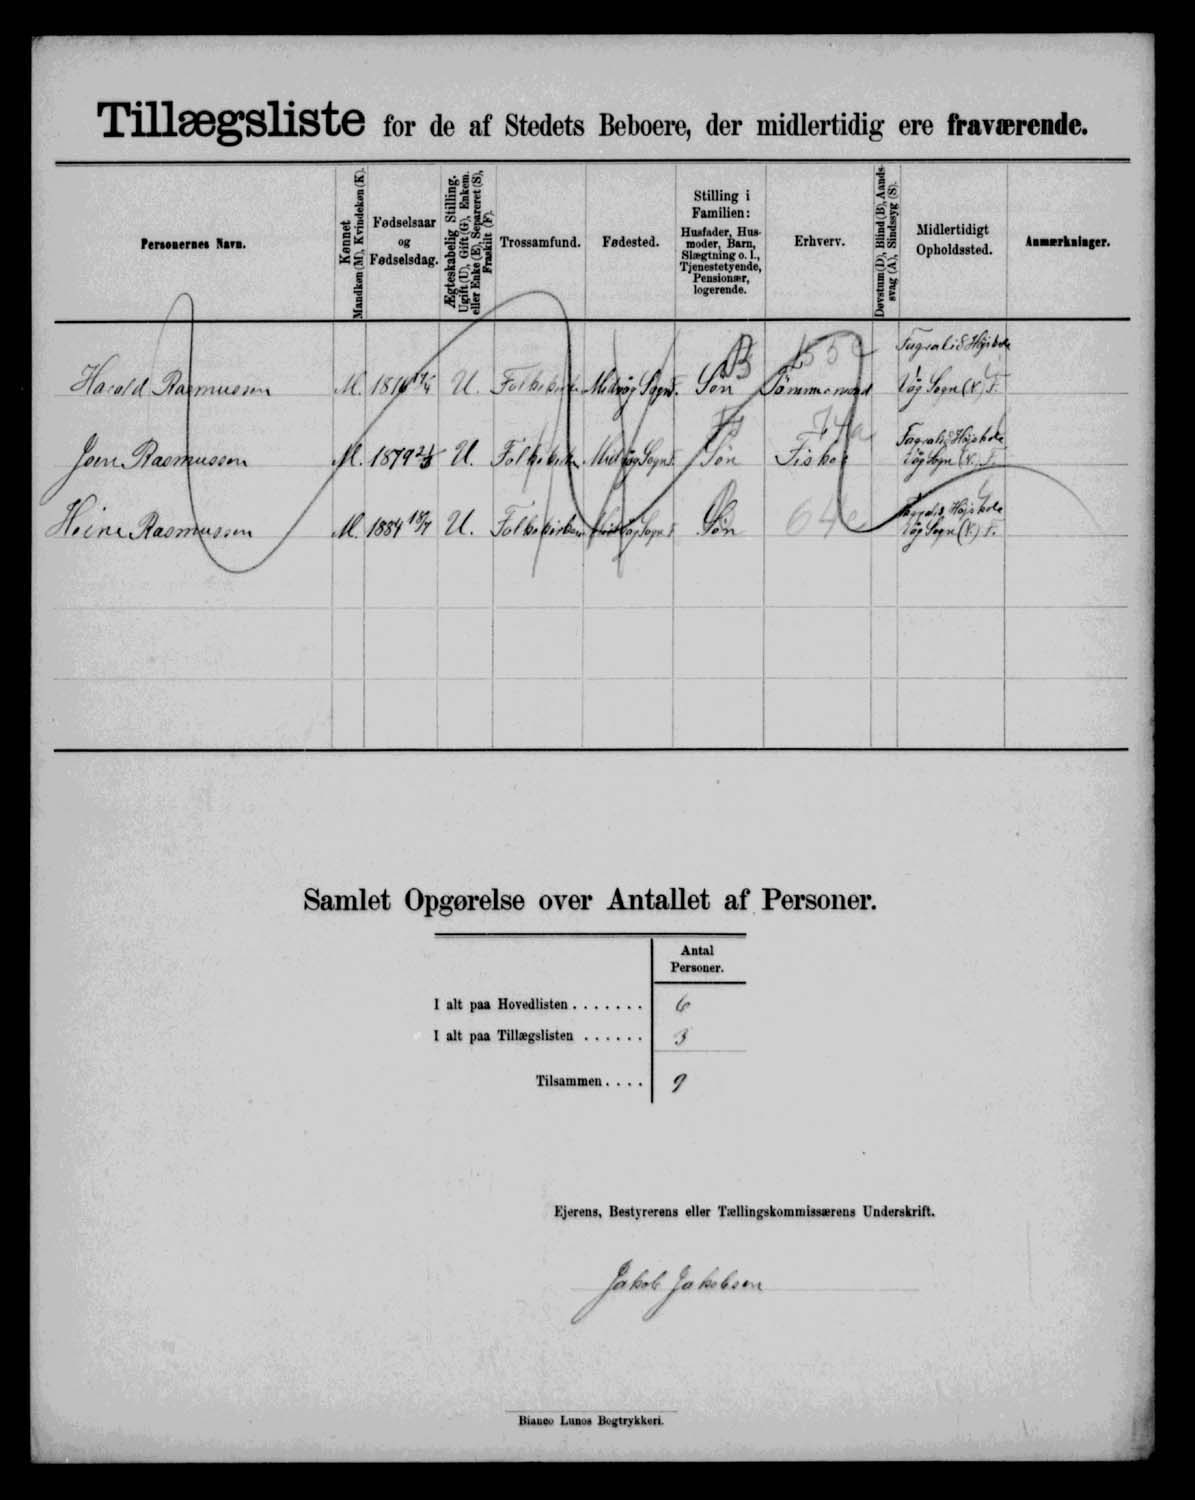 Tillægsliste for de af Stedets Beboere, der midlertidig ere fraværende.
Personernes Navn.
Kønnet
Mandkøn (M), Kvindekøn (K).
Fødselsaar
og
Fødselsdag.
Ægteskabelig Stilling.
Ugift (U), Gift (G), Enkem.
eller Enke (E), Separeret (S),
Fraskilt (F).
Trossamfund.
Fødested.
Stilling i
Familien:
Husfader, Hus-
moder, Barn,
Slægtning o. l.,
Tjenestetyende,
Pensionær,
logerende.
Erhverv.
Døvstum (D), Blind (B), Aands-
svag (A), Sindssyg (S).
Midlertidigt
Opholdssted.
Anmærkninger.
Højskole
Harald Rasmussen M. U. Folkekirken Midvåg Sogn F. Søn Tømmermand Våg Sogn (V.) F.
Højskole
Rasmussen M. 1879 U. Folkekirken Midvåg Sogn F. Søn Fisker Våg Sogn (V.) F.
Højskole
Heine Rasmussen M. 1884 18/7 U. Folkekirken Midvåg Sogn F. Søn 64 Våg Sogn (V.) F.
Samlet Opgørelse over Antallet af Personer.
Antal
Personer.
I alt paa Hovedlisten . . . . . . . 6
I alt paa Tillægslisten . . . . . . 3
Tilsammen . . . . 9
Ejerens, Bestyrerens eller Tællingskommissærens Underskrift.
Jakob Jakobsen
Bianco Lunos Bogtrykkeri.